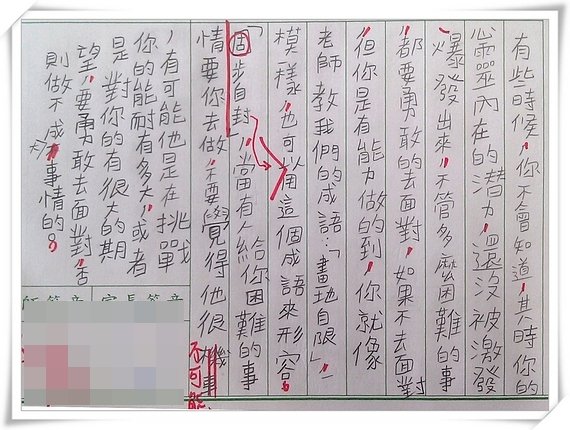 有些時候，你不會知道，其時你的
心靈內在的潛力，還沒被激發
爆發出來，不管多麼困難的事
，都要勇敢的去面對，如果不去面對
，但你是有能力做的到，你就像
老師教我們的成語：「畫地自限」一
模一樣，也可以用這個成語來形容。
「個步自封」，當有人給你困難的事
情要你去做，不要覺得他很機車
不可能
，有可能他是在挑戰
你的能耐有多大，或者
是對你的有很大的期
望，要勇敢去面對，否
則做不成大事情的。